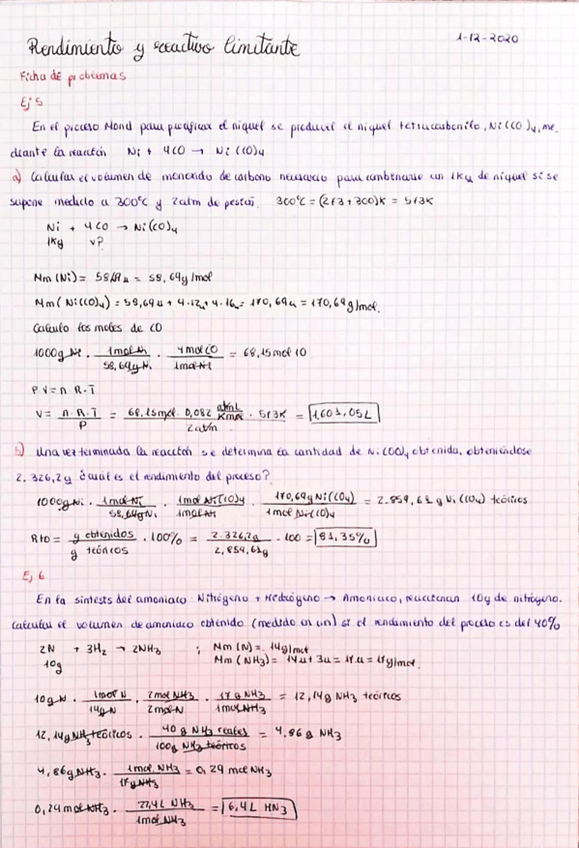 Rendimiento y reactivo limitante
1-12-2020
Ficha de problemas
Ej 5
En el proceso Mond para purificar el níquel se produce el níquel tetracarbonilo, Ni(CO)4, me-
diante la reacción Ni + 4CO → Ni(CO)4
a) Calcular el volumen de monóxido de carbono necesario para combinarse un 1Kg de níquel si se
supone medido a 300ºC y 2atm de 300ºC = (273+300)K = 573K
Ni + 4CO → Ni(CO)4
1Kg V?
Mm (Ni) = 58,69u = 58,69g/mol
Mm (Ni(CO)4) = 58,69u + 4·12u + 4·16u = 170,69u = 170,69g/mol.
Calculo los moles de CO
1000g Ni · 1mol Ni / 58,69g Ni · 4mol CO / 1mol Ni = 68,15mol CO
P·V = n·R·T
V = n·R·T / P = 68,15mol · 0,082 atm·L / K·mol · 573K / 2atm = 1.601,05L
b) Una vez terminada la reacción se determina la cantidad de Ni(CO)4 obtenida, obteniéndose
2.326,2g ¿cuál es el rendimiento del proceso?
1000g Ni · 1mol Ni / 58,69g Ni · 1mol Ni(CO)4 / 1mol Ni · 170,69g Ni(CO)4 / 1mol Ni(CO)4 = 2.859,61 g Ni(CO)4 teóricos
Rto = g obtenidos / g teóricos · 100% = 2.326,2g / 2.859,61g · 100 = 81,35%
Ej 6
En la síntesis del amoniaco: Nitrógeno + Hidrógeno → Amoniaco, reaccionan 10g de nitrógeno.
Calcular el volumen de amoniaco obtenido (medido en cn) si el rendimiento del proceso es del 40%
2N + 3H2 → 2NH3 ; Mm (N) = 14g/mol
10g Mm (NH3) = 14u + 3u = 17u = 17g/mol.
10g N · 1mol N / 14g N · 2mol NH3 / 2mol N · 17g NH3 / 1mol NH3 = 12,14g NH3 teóricos
12,14g NH3 teóricos · 40 g NH3 reales / 100g NH3 teóricos = 4,86 g NH3
4,86g NH3 · 1mol NH3 / 17g NH3 = 0,29 mol NH3
0,29 mol NH3 · 22,4L NH3 / 1mol NH3 = 6,4L HN3